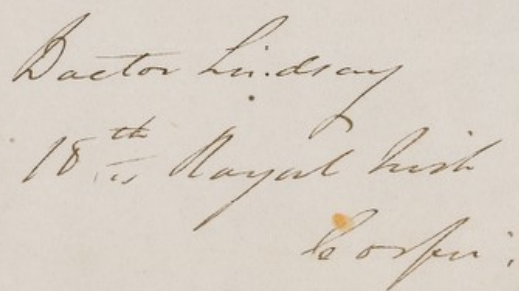 Doctor Lindsay
18th Royal Irish
Corfu.